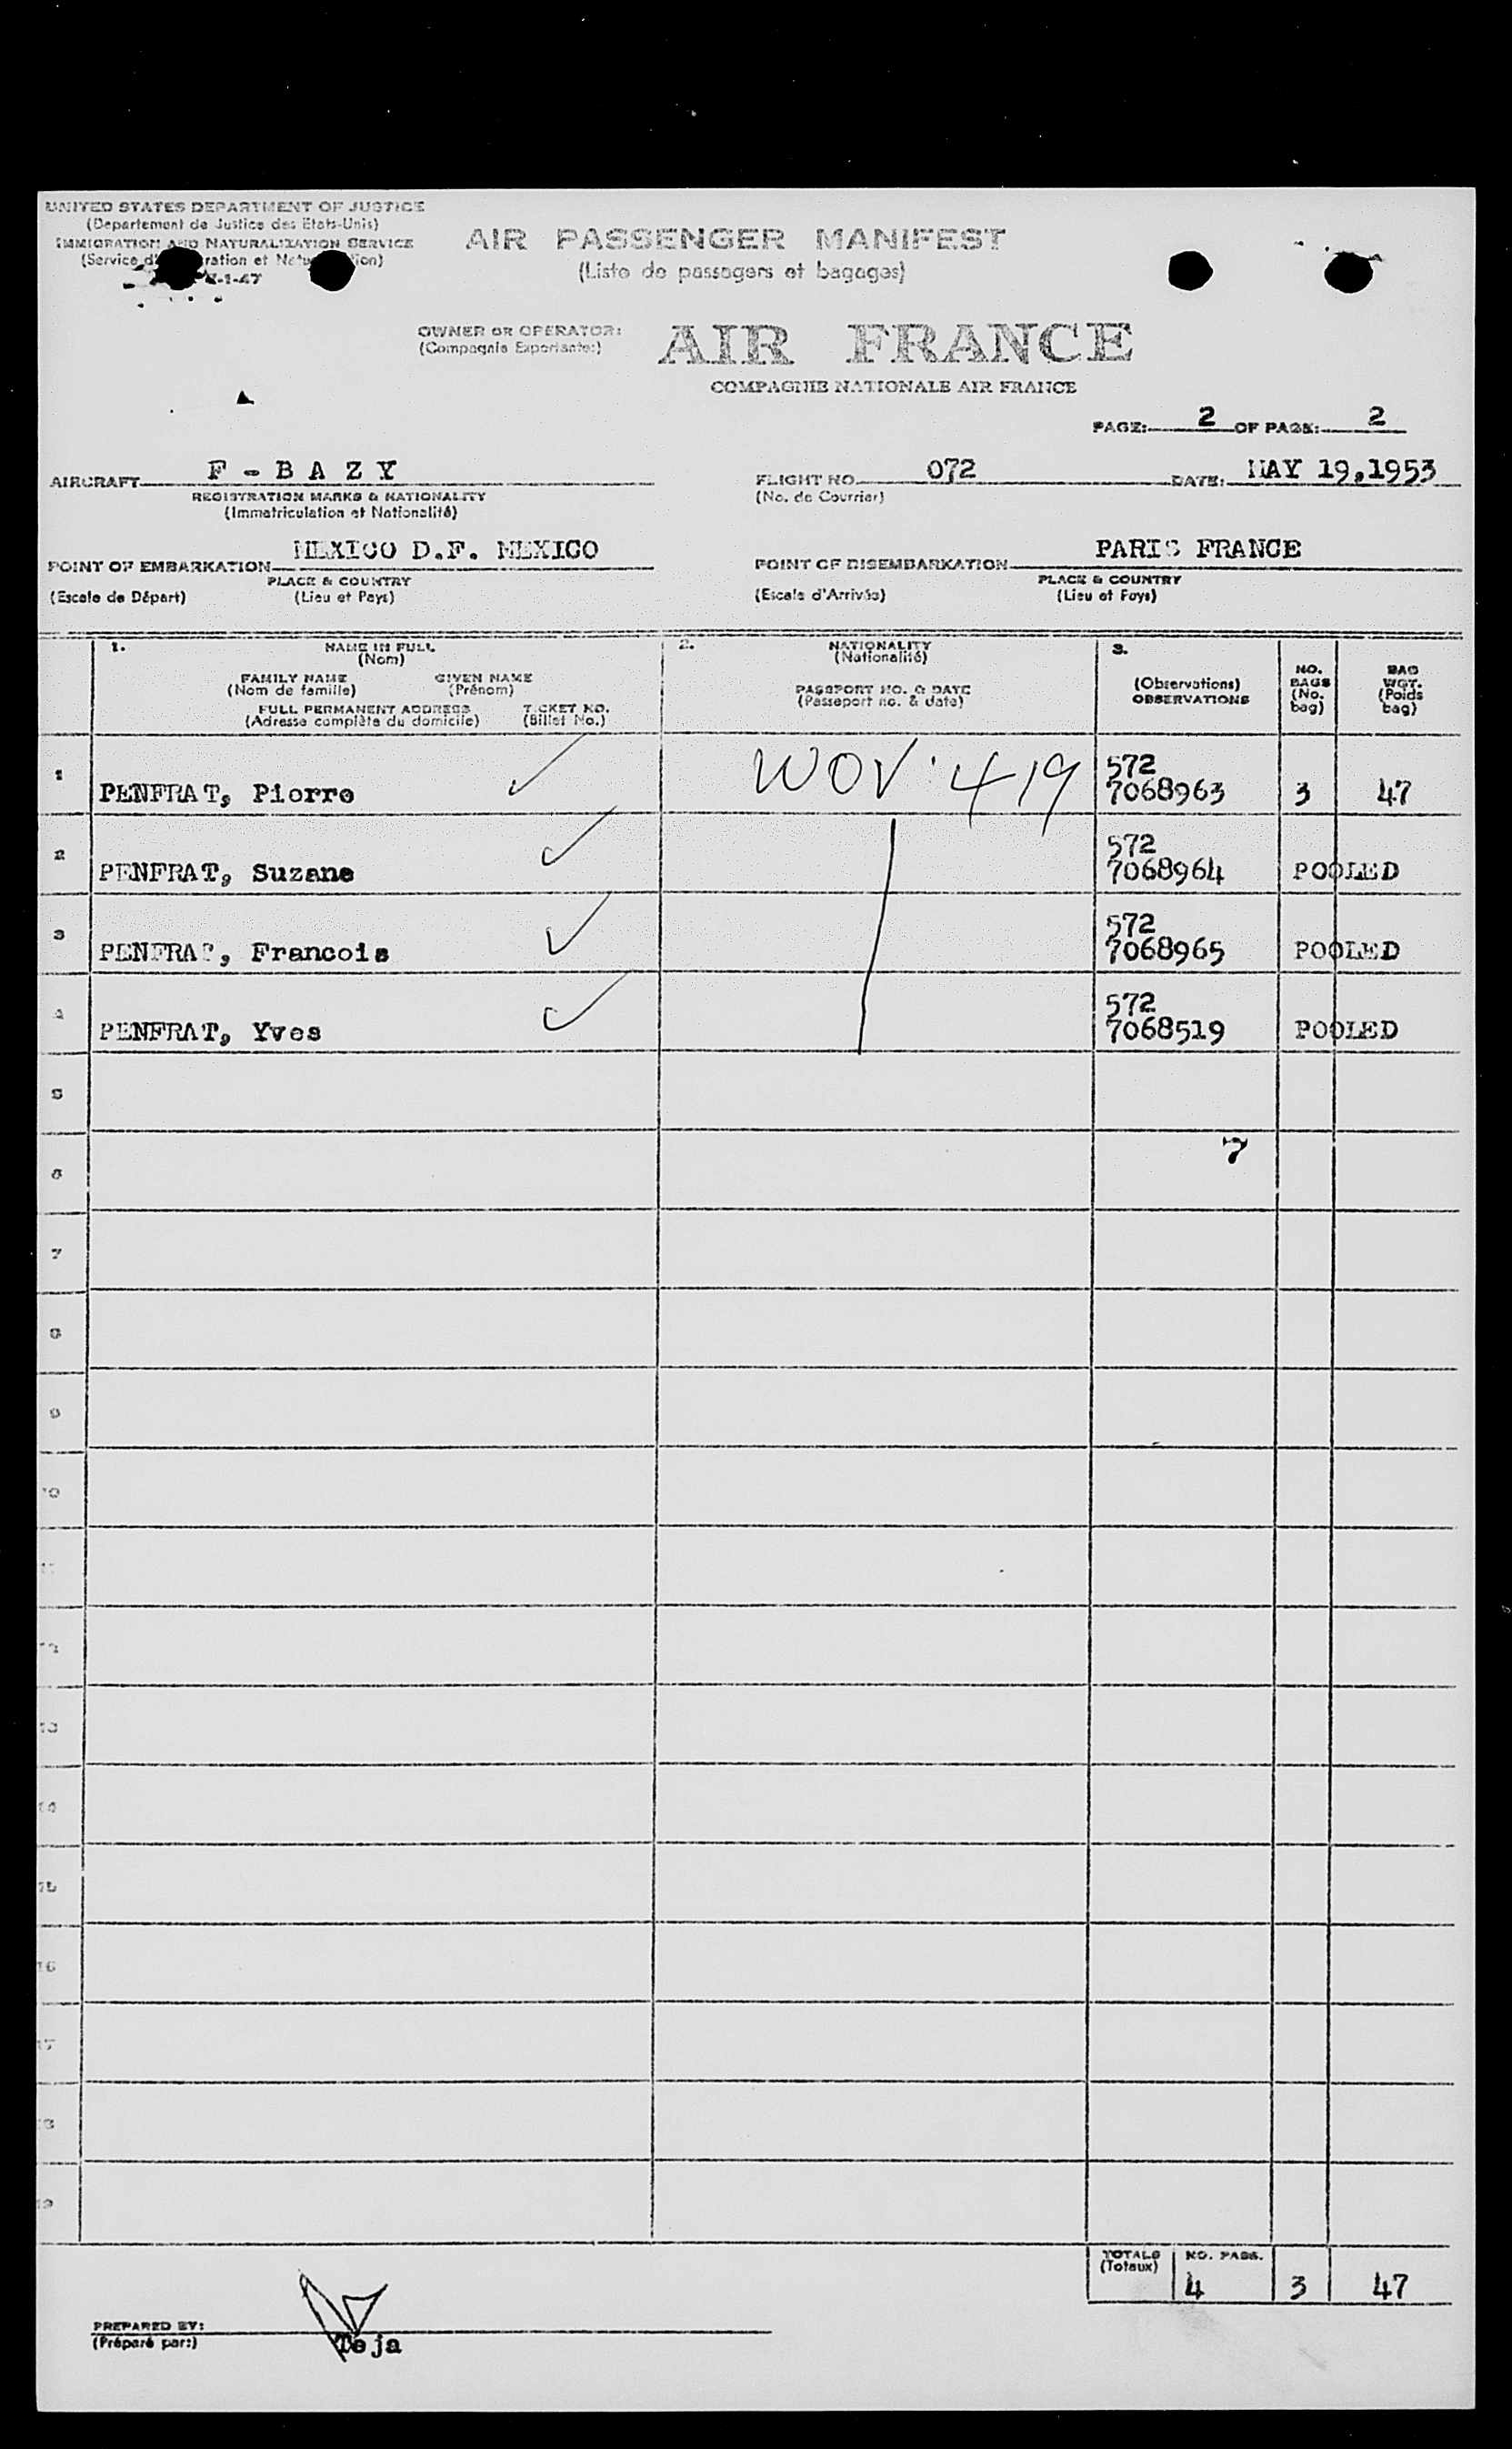 UNITED STATES DEPARTMENT OF JUSTICE
(Departement de Justice des Etats-Unis)
IMMIGRATION AND NATURALIZATION SERVICE
7-1-47
AIR PASSENGER MANIFEST
(Liste de passagers et bagages)
OWNER OR OPERATOR:
(Compagnie Exportante:)
AIR FRANCE
COMPAGNIE NATIONALE AIR FRANCE
PAGE: 2 OF PAGE: 2
AIRCRAFT F - B A Z Y
REGISTRATION MARKS & NATIONALITY
(Immatriculation et Nationalité)
FLIGHT NO. 072 DATE: MAY 19,1953
(No. de Courrier)
POINT OF EMBARKATION MEXICO D.F. MEXICO
PLACE & COUNTRY
(Escale de Départ) (Lieu et Pays)
POINT OF DISEMBARKATION PARIS FRANCE
PLACE & COUNTRY
(Escale d'Arrivée) (Lieu et Pays)
1. NAME IN FULL
(Nom)
FAMILY NAME GIVEN NAME
(Nom de famille) (Prénom)
FULL PERMANENT ADDRESS TICKET NO.
(Adresse complète du domicile) (Billet No.)
2. NATIONALITY
(Nationalité)
PASSPORT NO. & DATE
(Passeport no. & date)
3.
(Observations)
OBSERVATIONS
NO.
BAGS
(No.
bag)
BAG
WGT.
(Poids
bag)
1 PENFRAT, Pierre WOV 419 572
7068963 3 47
2 PENFRAT, Suzane 572
7068964 POOLED
3 PENFRAT, Francois 572
7068965 POOLED
4 PENFRAT, Yves 572
7068519 POOLED
5
6 7
7
8
9
10
11
12
13
14
15
16
17
18
19
TOTALS NO. PASS.
(Totaux) 4 3 47
PREPARED BY:
(Préparé par:) Teja